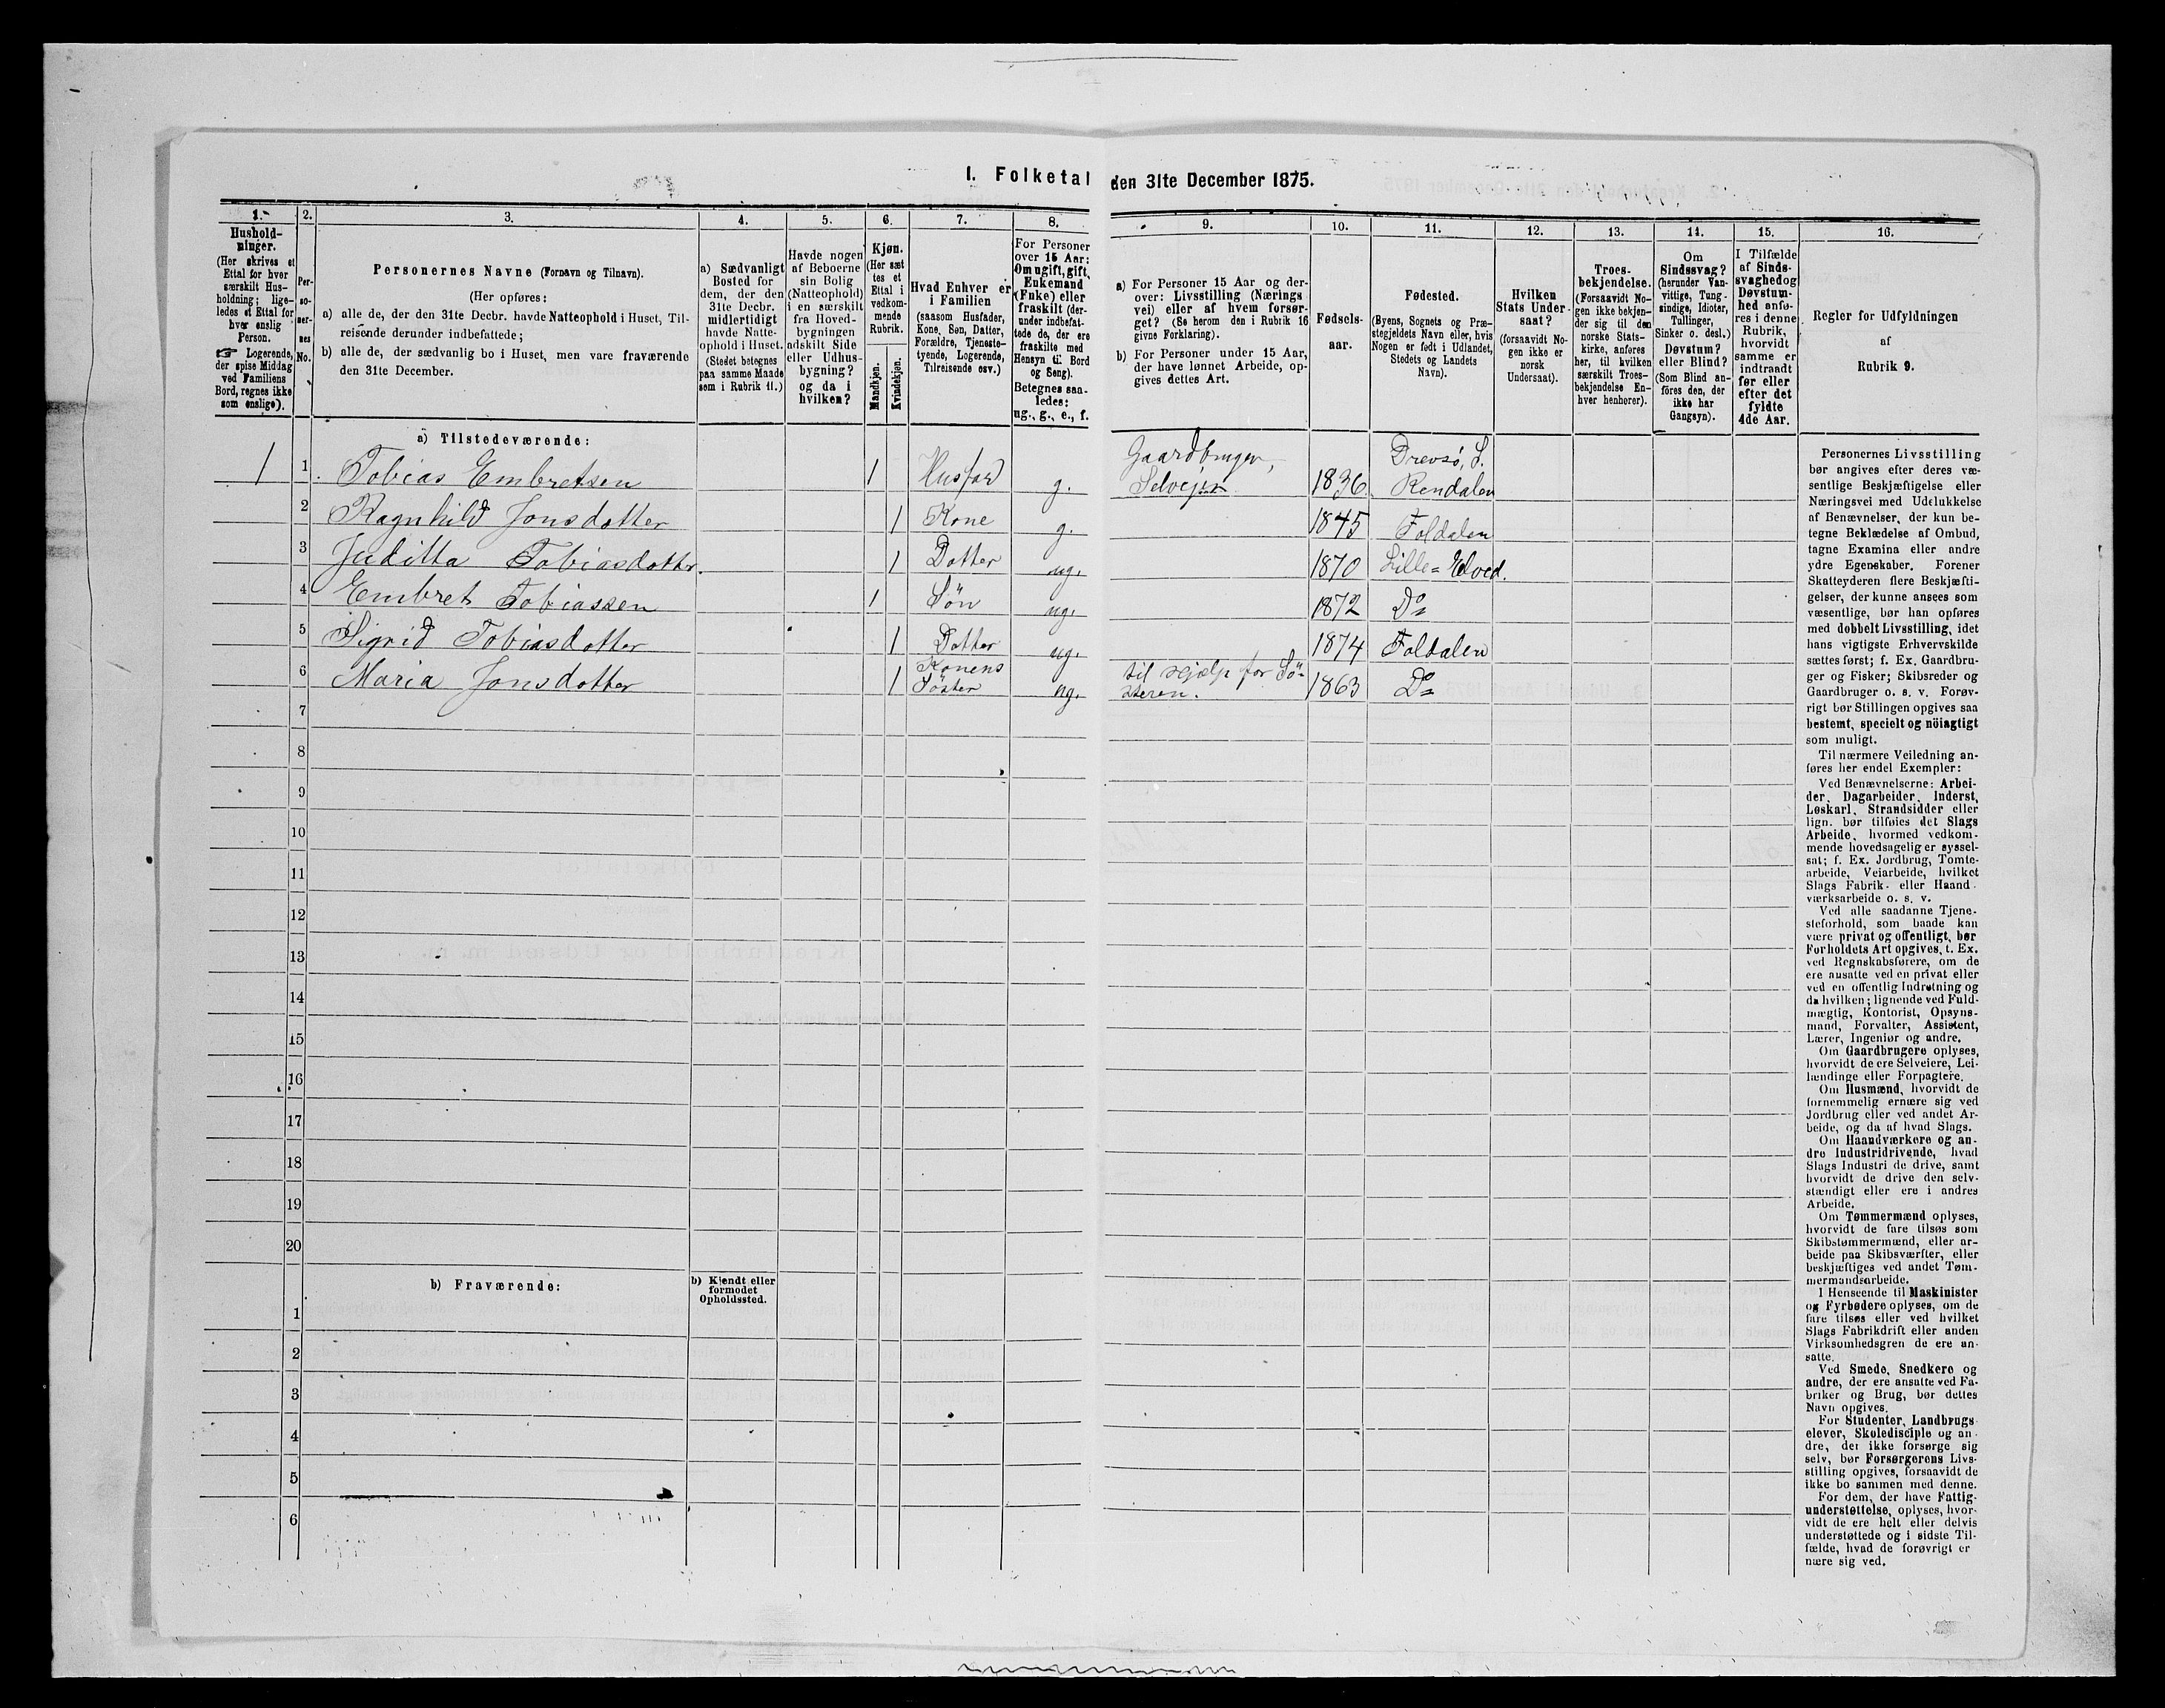 I. Folketal den 31te December 1875.
1. 2. 3. 4. 5. 6. 7. 8. 9. 10. 11. 12. 13. 14. 15. 16.
Hushold-
ninger.
(Her skrives et
Ettal for hver
særskilt Hus-
holdning; lige-
ledes et Ettal for
hver enslig
Person.
☞ Logerende,
der spise Middag
ved Familiens
Bord, regnes ikke
som enslige).
Per-
so-
ner-
nes
No.
Personernes Navne (Fornavn og Tilnavn).
(Her opføres:
a) alle de, der den 31te Decbr. havde Natteophold i Huset, Til-
reisende derunder indbefattede;
b) alle de, der sædvanlig bo i Huset, men vare fraværende
den 31te December.
a) Sædvanligt
Bosted for
dem, der den
31te Decbr.
midlertidigt
havde Natte-
ophold i Huset.
(Stedet betegnes
paa samme Maade
som i Rubrik 11.)
Havde nogen
af Beboerne
sin Bolig
(Natteophold)
i en særskilt
fra Hoved-
bygningen
adskilt Side
eller Udhus-
bygning?
og da i
hvilken?
Kjøn.
(Her sæt
tes et
Ettal i
vedkom-
mende
Rubrik.
Mandkjøn.
Kvindekjøn.
Hvad Enhver er
i Familien
(saasom Husfader,
Kone, Søn, Datter,
Forældre, Tjeneste-
tyende, Logerende,
Tilreisende osv.)
For Personer
over 15 Aar:
Om ugift, gift,
Enkemand
(Enke) eller
fraskilt (der-
under indbefat-
tede de, der ere
fraskilte med
Hensyn til Bord
og Seng).
Betegnes saa-
ledes:
ug., g., e., f.
a) For Personer 15 Aar og der-
over: Livsstilling (Nærings
vei) eller af hvem forsør-
get? (Se herom den i Rubrik 16
givne Forklaring).
b) For Personer under 15 Aar,
der have lønnet Arbeide, op-
gives dettes Art.
Fødsels-
aar.
Fødested.
(Byens, Sognets og Præ-
stegjeldets Navn eller, hvis
Nogen er født i Udlandet,
Stedets og Landets
Navn).
Hvilken
Stats Under-
saat?
(forsaavidt No-
gen ikke er
norsk
Undersaat).
Troes-
bekjendelse.
(Forsaavidt No-
gen ikke bekjen-
der sig til den
norske Stats-
kirke, anføres
her, til hvilken
særskilt Troes-
bekjendelse En-
hver henhører).
Om
Sindssvag?
(herunder Van-
vittige, Tung-
sindige, Idioter,
Tullinger,
Sinker o. desl.)
Døvstum?
eller Blind?
(Som Blind an-
föres den, der
ikke har
Gangsyn).
I Tilfælde
af Sinds-
svaghed og
Døvstum-
hed anfø-
res i denne
Rubrik,
hvorvidt
samme er
indtraadt
før eller
efter det
fyldte
4de Aar.
Regler for Udfyldningen
af
Rubrik 9.
a) Tilstedeværende:
1 1 Tobias Embretsen 1 Husfad g. Gaardbruger, Selvejer 1836 Drevsø, L. Rendalen
2 Ragnhild Jonsdotter 1 Kone g. 1845 Foldalen
3 Juditta Tobiasdotter. 1 Dotter ug. 1870 Lille=Elved.
4 Embret Tobiassen 1 Sön ug. 1872 Do
5 Sigrid Tobiasdotter 1 Dotter ug. 1874 Foldalen
6 Maria Jonsdotter 1 Konens Söster ug. til Hjælp for Sö-
steren. 1863 Do
7
8
9
10
11
12
13
14
15
16
17
18
19
20
b) Fraværende:
b) Kjendt eller
formodet
Opholdssted.
1
2
3
4
5
6
Personernes Livsstilling
bør angives efter deres væ-
sentlige Beskjæftigelse eller
Næringsvei med Udelukkelse
af Benævnelser, der kun be-
tegne Beklædelse af Ombud,
tagne Examina eller andre
ydre Egenskaber. Forener
Skatteyderen flere Beskjæfti-
gelser, der kunne ansees som
væsentlige, bør han opføres
med dobbelt Livsstilling, idet
hans vigtigste Erhvervskilde
sættes først; f. Ex. Gaardbru-
ger og Fisker; Skibsreder og
Gaardbruger o. s. v. Forøv-
rigt bør Stillingen opgives saa
bestemt, specielt og nöiagtigt
som muligt.
Til nærmere Veiledning an-
føres her endel Exempler:
Ved Benævnelserne: Arbei-
der, Dagarbeider, Inderst,
Løskarl, Strandsidder eller
lign. bør tilføies det Slags
Arbeide, hvormed vedkom-
mende hovedsagelig er syssel-
sat; f. Ex. Jordbrug, Tomte-
arbeide, Veiarbeide, hvilket
Slags Fabrik- eller Haand-
værksarbeide o. s. v.
Ved alle saadanne Tjene-
steforhold, som baade kan
være privat og offentligt, bør
Forholdets Art opgives, t. Ex.
ved Regnskabsførere, om de
ere ansatte ved en privat eller
ved en offentlig Indretning og
da hvilken; lignende ved Fuld-
mægtig, Kontorist, Opsyns-
mand, Forvalter, Assistent,
Lærer, Ingeniør og andre.
Om Gaardbrugere oplyses,
hvorvidt de ere Selveiere, Lei-
lændinge eller Forpagtere.
Om Husmænd, hvorvidt de
fornemmelig ernære sig ved
Jordbrug eller ved andet Ar-
beide, og da af hvad Slags.
Om Haandværkere og an-
dre Industridrivende, hvad
Slags Industri de drive, samt
hvorvidt de drive den selv-
stændigt eller ere i andres
Arbeide.
Om Tømmermænd oplyses,
hvorvidt de fare tilsøs som
Skibstømmermænd, eller ar-
beide paa Skibsværfter, eller
beskjæftiges ved andet Tøm-
mermandsarbeide.
I Henseende til Maskinister
og Fyrbødere oplyses, om de
fare tilsøs eller ved hvilket
Slags Fabrikdrift eller anden
Virksomhedsgren de ere an-
satte.
Ved Smede, Snedkere og
andre, der ere ansatte ved Fa-
briker og Brug, bør dettes
Navn opgives.
For Studenter, Landbrugs
elever, Skoledisciple og an-
dre, der ikke forsørge sig
selv, bør Forsørgerens Livs-
stilling opgives, forsaavidt de
ikke bo sammen med denne.
For dem, der have Fattig-
understøttelse, oplyses, hvor-
vidt de ere helt eller delvis
understøttede og i sidste Til-
fælde, hvad de forøvrigt er
nære sig ved.